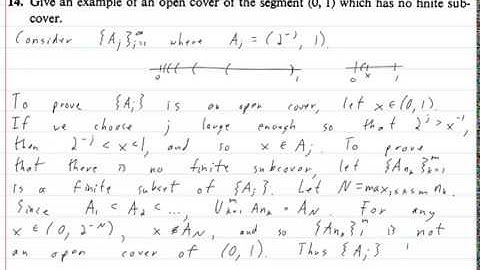 14. Give an example of an open cover of the segment (0, 1) which has no finite sub-
cover.
Consider {A_j}_{j=1}^∞ where A_j = (2^{-j}, 1).
0 1 0 x 1
To prove {A_j} is an open cover, let x ∈ (0, 1).
If we choose j large enough so that 2^j > x^{-1},
then 2^{-j} < x < 1, and so x ∈ A_j. To prove
that there is no finite subcover, let {A_{n_k}}_{k=1}^m
is a finite subset of {A_j}. Let N = max_{1≤k≤m} n_k.
Since A_1 ⊂ A_2 ⊂ ..., ∪_{k=1}^m A_{n_k} = A_N. For any
x ∈ (0, 2^{-N}), x ∉ A_N, and so {A_{n_k}}_1^m is not
an open cover of (0, 1). Thus {A_j}